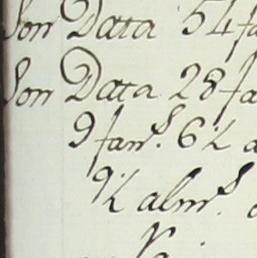 Son Data 54 fa
Son Data 28 fa
9 fam.s 6½ a
9½ alm.s